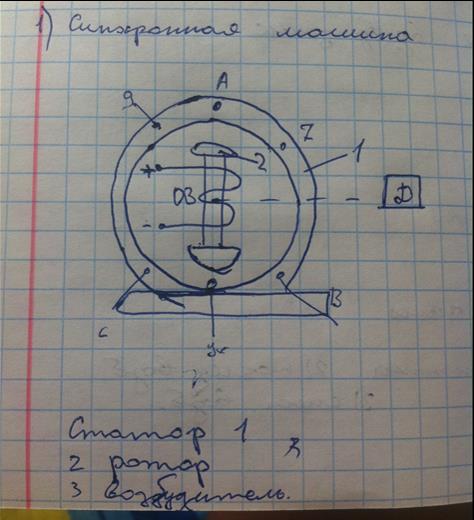 1) Синхронная машина
A
Z
1
2
+
ОВ
Д
-
B
C
Статор 1
2 ротор
3 возбудитель.